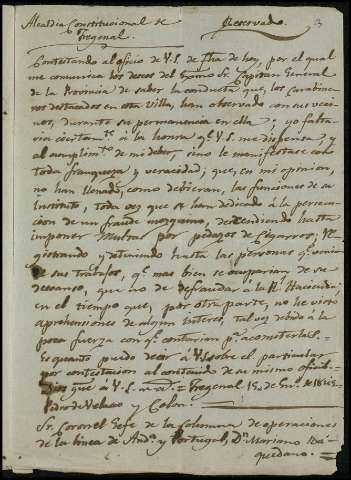 Alcaldia Constitucional de Fregenal.
Reservado.
3
Contestando al oficio de V.S. de fha de hoy, por el qual
me comunica los deseos del Exmo Sr. Capitan General
de la Provincia de saber la conducta que, los Carabine-
ros destacados en esta Villa, han observado con sus veci-
nos, durante su permanencia en ella; yo falta-
ria ciertamte. á la honra qe. V.S. me dispensa y
al cumplimto. de mi deber, sino le manifestase con
toda franqueza y veracidad; que, en mi opinion,
no han llenado, como debieran, las funciones de su
Instituto, toda vez que se han dedicado á la persecu-
cion de un fraude mezquino, decendiendo hasta
imponer Multas por pedazos de Cigarro; Re-
gistrando y deteniendo hasta las personas qe. venian
de sus trabajos, qe. mas bien se ocuparian de su
descanso, que no de defraudar á la Rl. Hacienda
en el tiempo que, por otra parte, no he visto
aprehensiones de algun interes, tal vez debido á la
poca fuerza con qe. contarian pa. acometerlas.=
Es quanto puedo decir á V.S. sobre el particular
por contestacion al contenido de su mismo oficio.=
Dios gue á V.S. = Fregenal 15 de En.º de
Pedro de Velasco y Colon.
Sr. Coronel Gefe de la Columna de operaciones
de la linea de And.ª y Portugal, Dn. Mariano Ba-
quedano.=